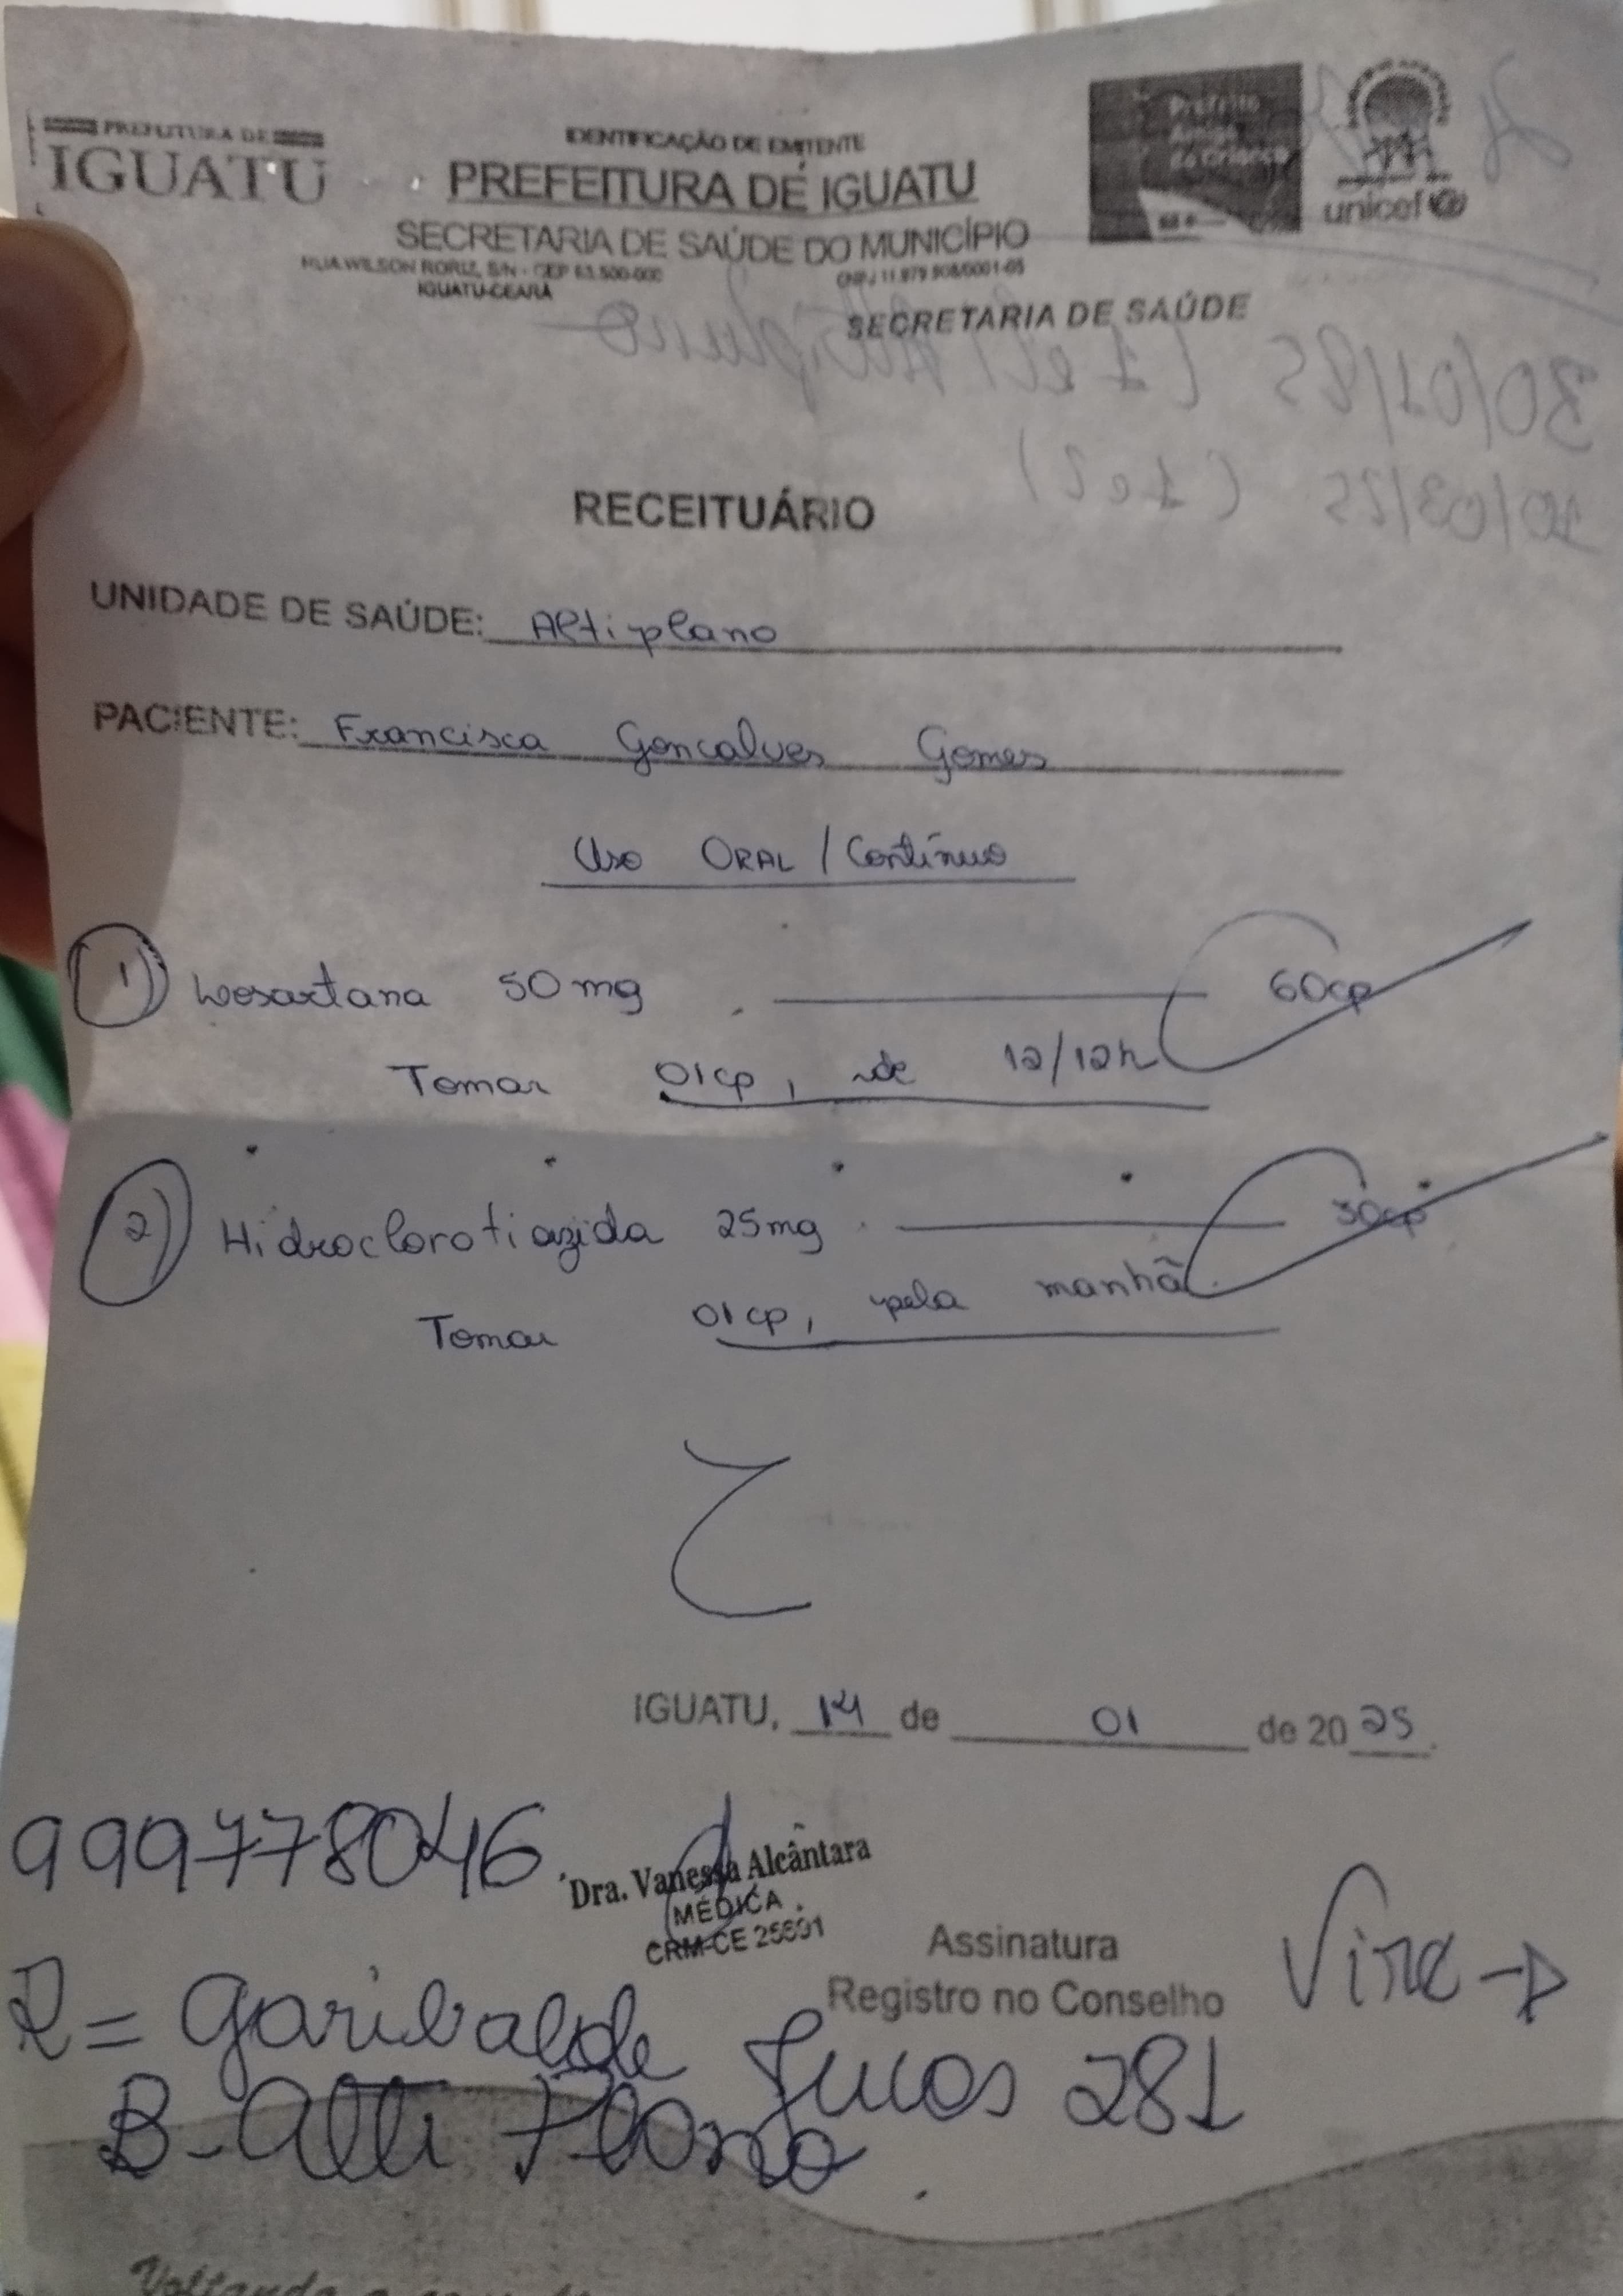 PREFEITURA DE
IGUATU
IDENTIFICAÇÃO DE EMITENTE
PREFEITURA DE IGUATU
SECRETARIA DE SAÚDE DO MUNICÍPIO
RUA WILSON RORIZ, S/N - CEP 63.500-000
IGUATU-CEARÁ
SECRETARIA DE SAÚDE
Prefeito
Amigo
da Criança
unicef
30/01/25 (1 e 2) Altiplano
10/03/25 (1 e 2)
RECEITUÁRIO
UNIDADE DE SAÚDE: Altiplano
PACIENTE: Francisca Goncalves Gomes
Uso ORAL / Contínuo
1) Losartana 50mg 60cp
Tomar 01cp, de 12/12h
2) Hidroclorotiazida 25mg 30cp
Tomar 01cp, pela manhã.
IGUATU, 14 de 01 de 2025.
999778046
Dra. Vanessa Alcântara
MÉDICA
CRM-CE
Assinatura
Registro no Conselho
Vire
R= Garibalde
281
B-Alti Plano
Voltando